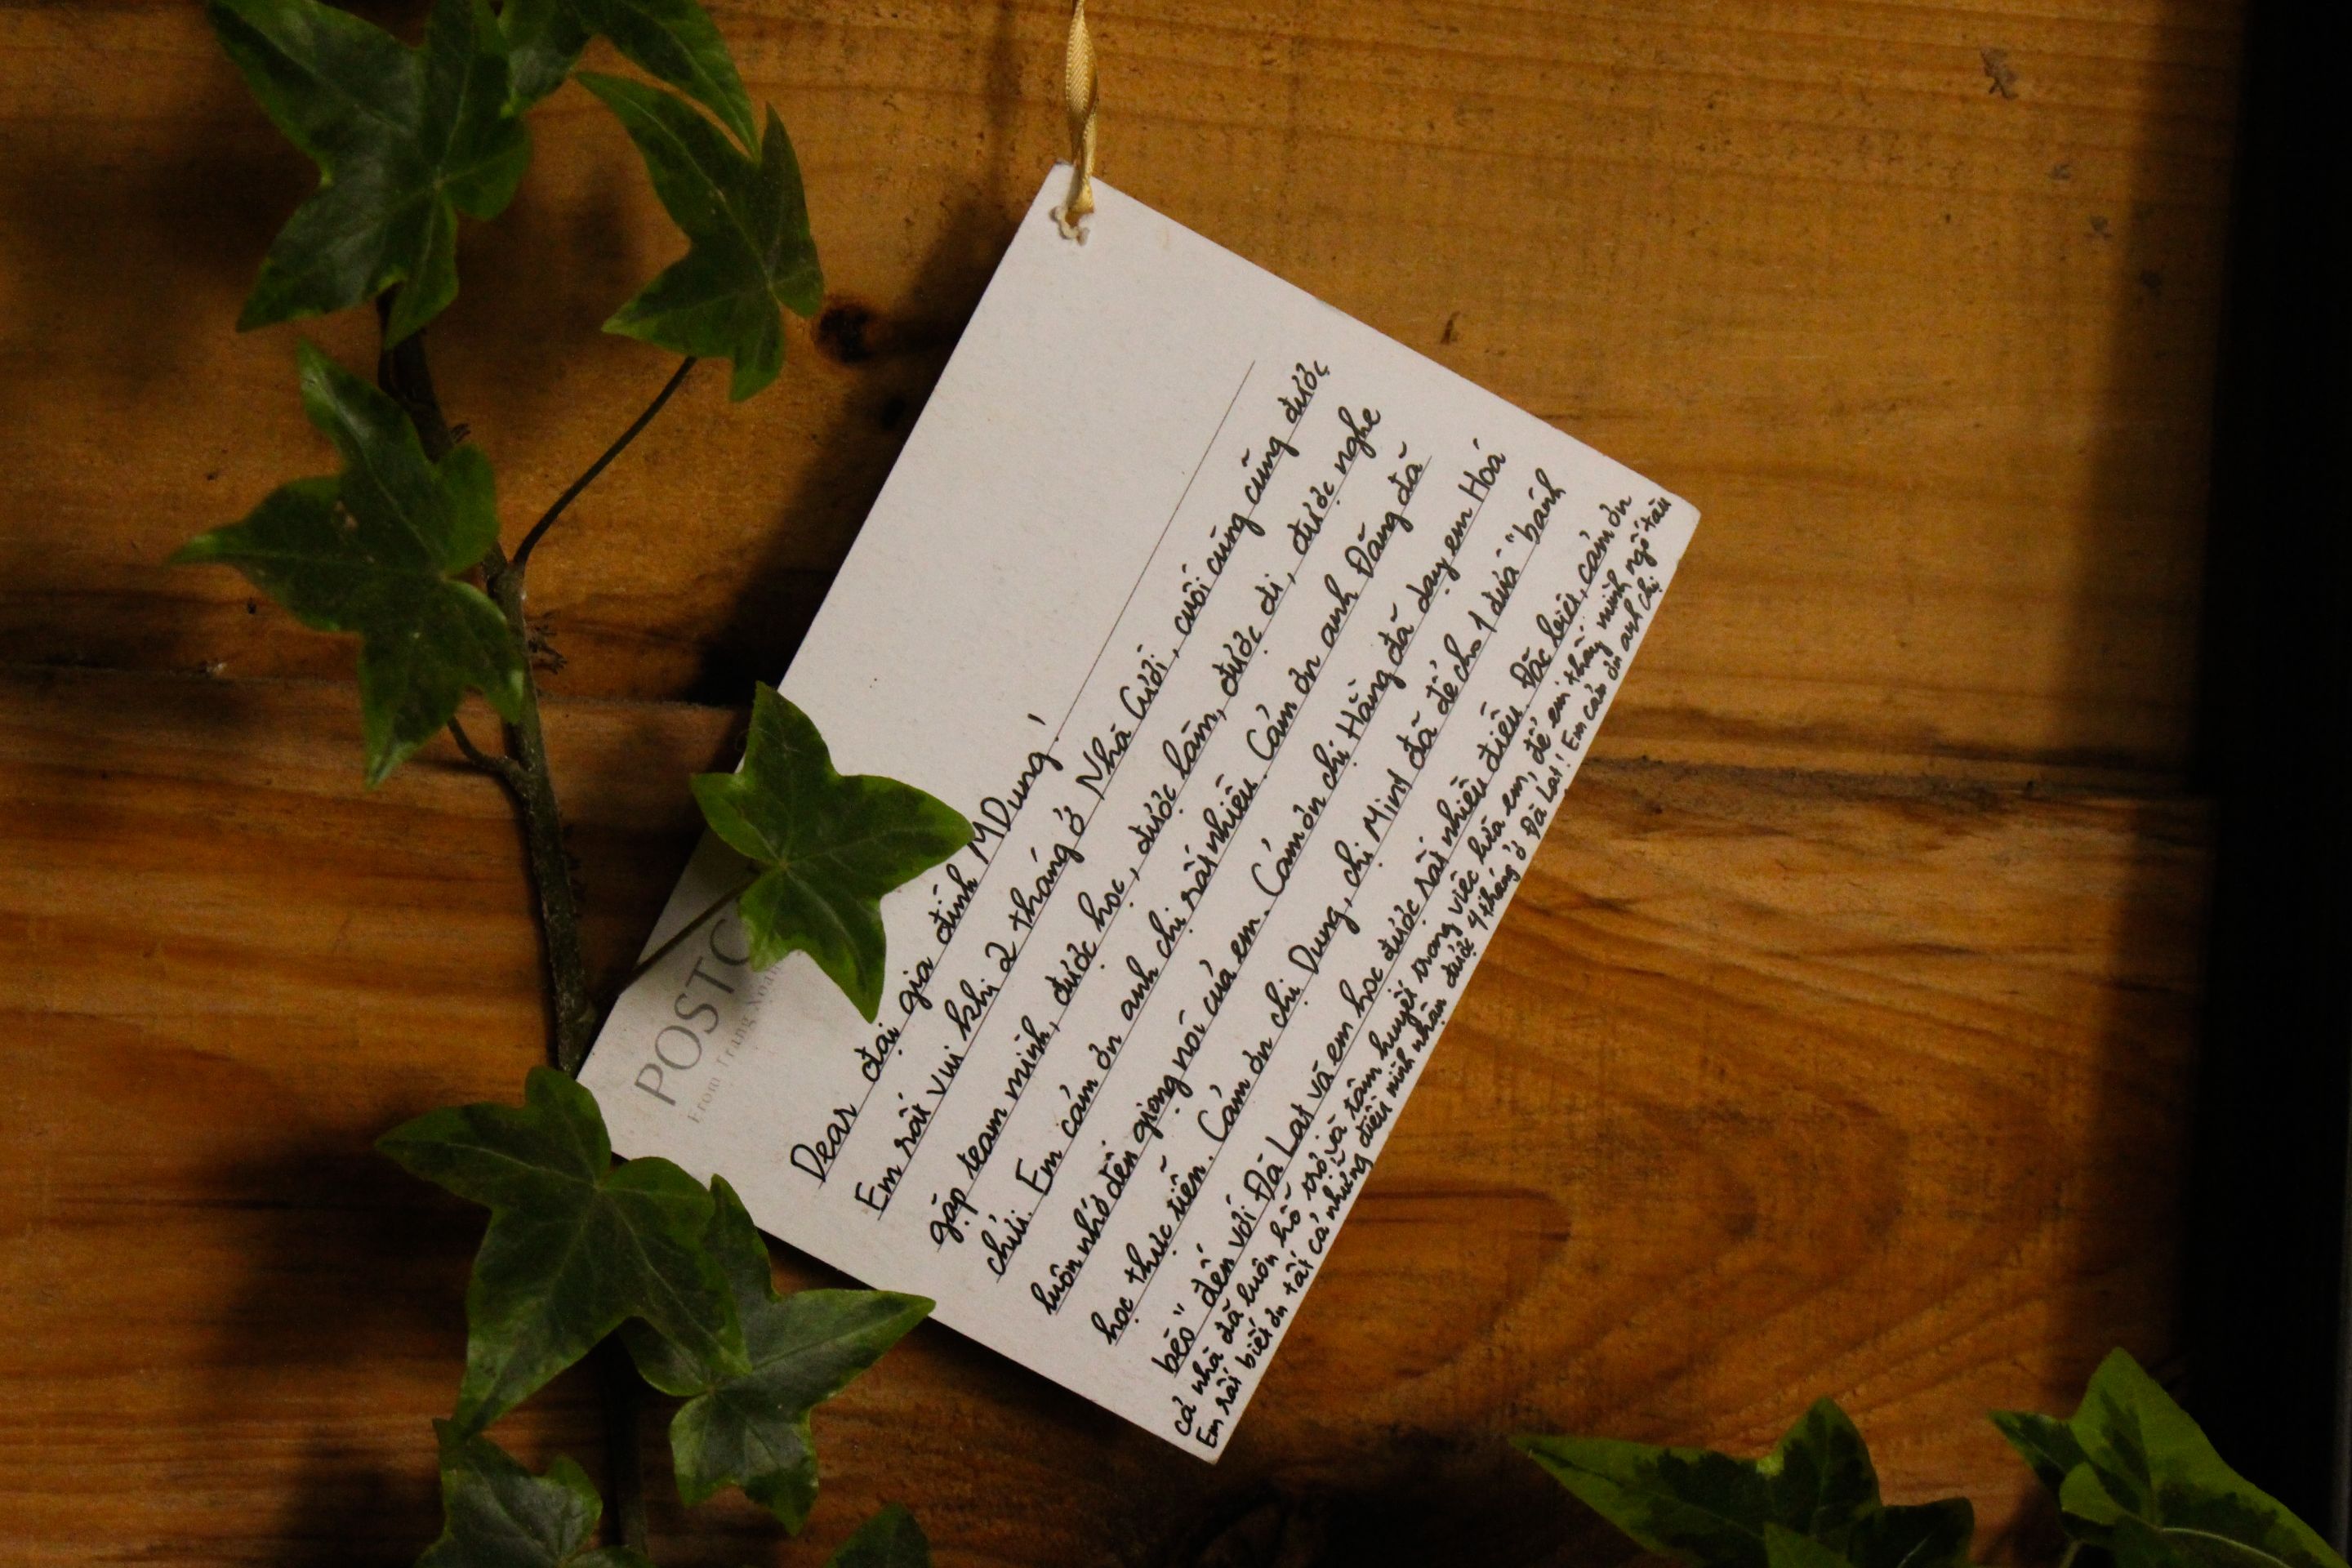 POSTC
From Trang
Dear đại gia đình MDung!
Em rất vui khi 2 tháng ở Nhà Cười, cuối cùng cũng được
gặp team mình, được học, được làm, được đi, được nghe
chửi. Em cảm ơn anh chị rất nhiều. Cảm ơn anh Đăng đã
luôn nhớ đến giọng nói của em. Cảm ơn chị Hằng đã dạy em Hoá
học thực tiễn. Cảm ơn chị Dung, chị Mind đã để cho 1 đứa "bánh
bèo" đến với Đà Lạt và em học được rất nhiều điều. Đặc biệt, cảm ơn
cả nhà đã luôn hỗ trợ và tâm huyết trong việc hứa em, để em thấy mình ngố tàu
Em rất biết ơn tất cả những điều mình nhận được 4 tháng ở Đà Lạt! Em cảm ơn anh chị